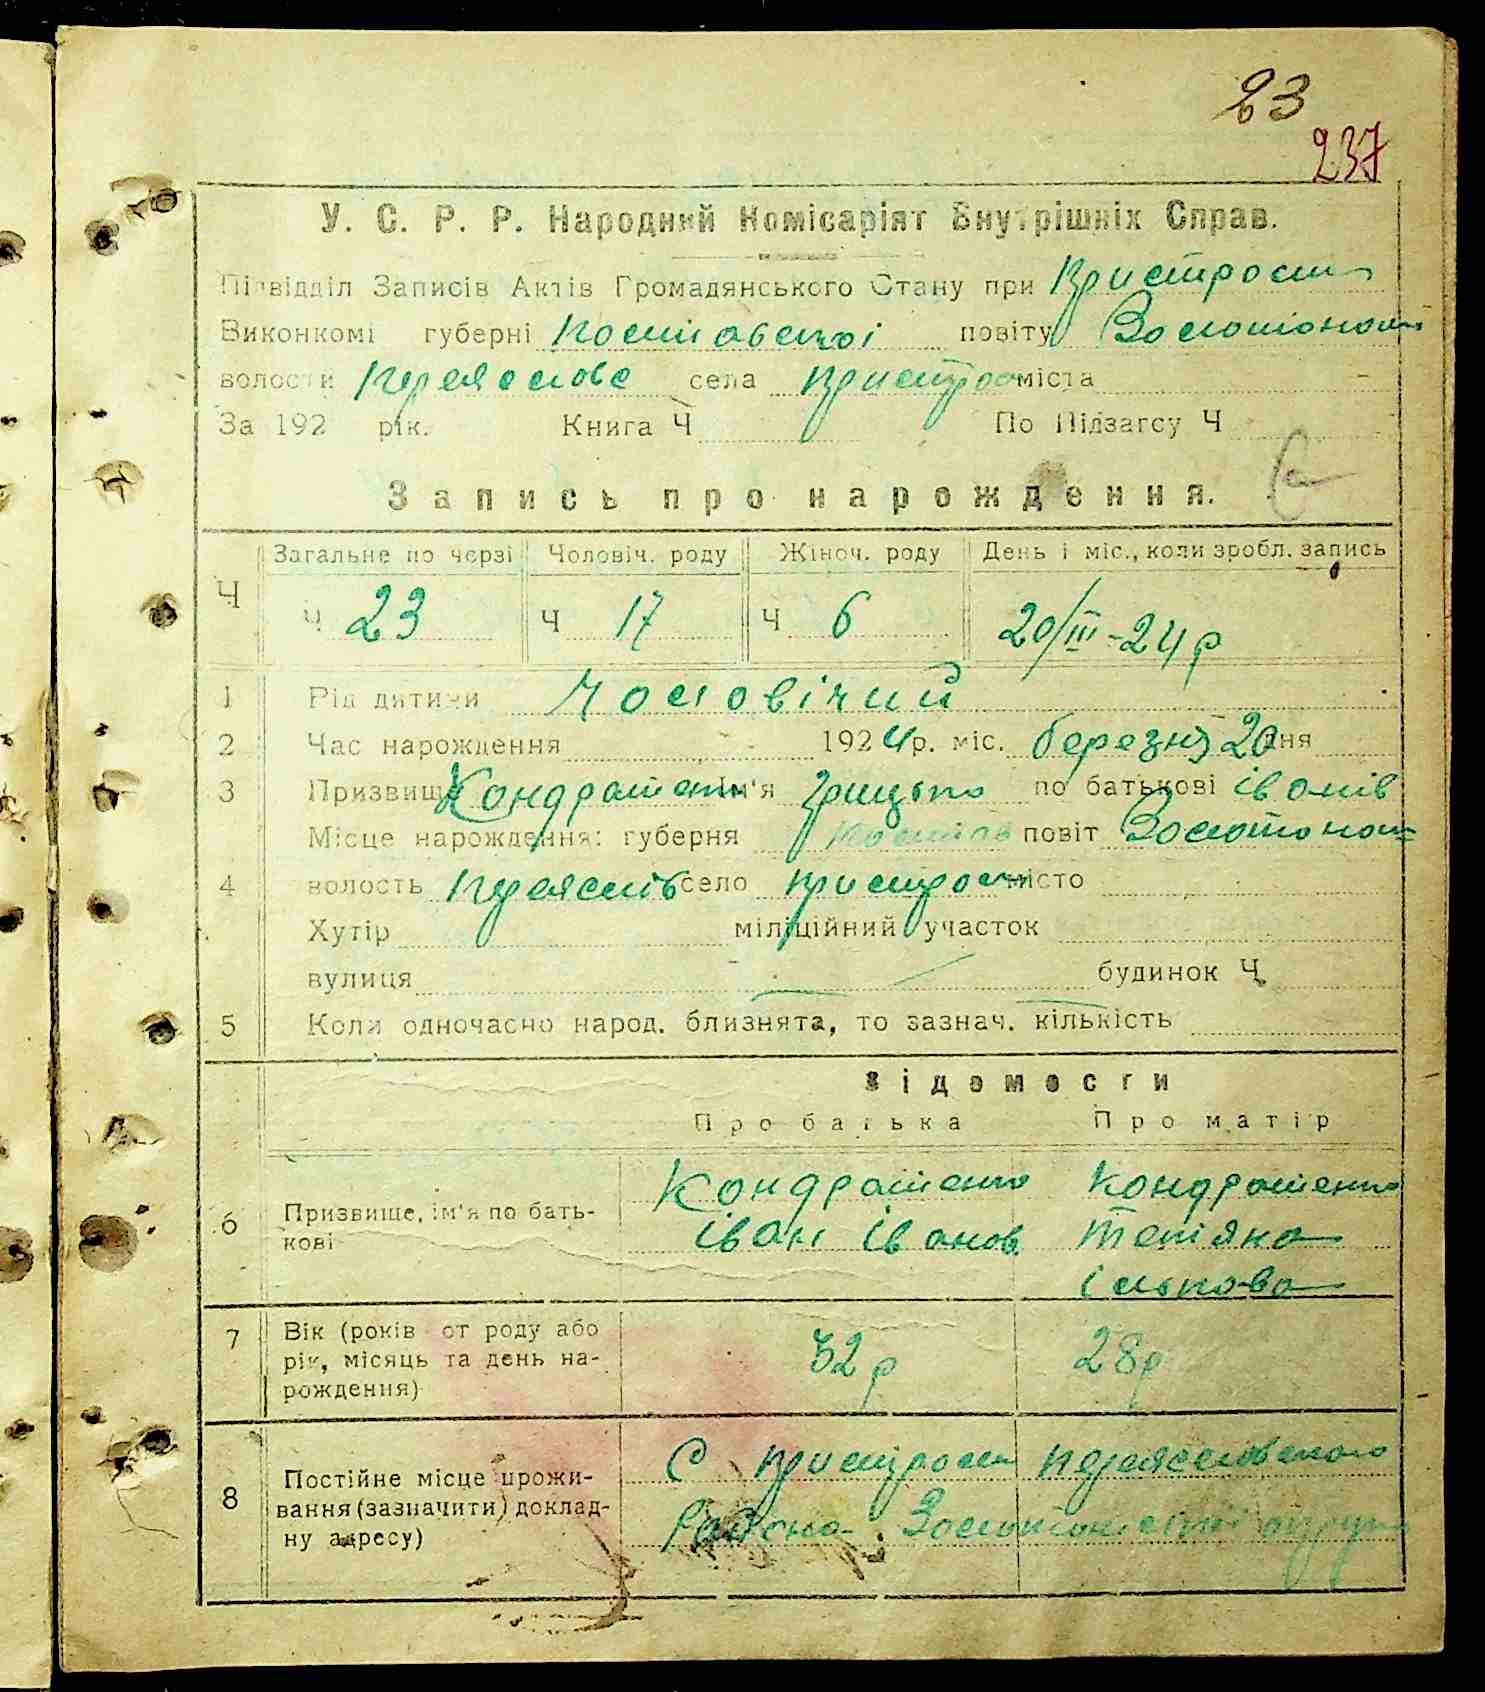 23
237
У. С. Р. Р. Народний Комісаріят Внутрішніх Справ.
Підвідділ Записів Актів Громадянського Стану при Пристром
Виконкомі губерні Полтавської повіту Золотонош
волости Переяслове села Пристром міста
За 192 рік. Книга Ч По Підзагсу Ч
Запись про нарождення.
Загальне по черзі Чоловіч. роду Жіноч. роду День і міс., коли зробл. запись
Ч Ч 23 Ч 17 Ч 6 20/III-24р
1 Рід дитини Чоловічий
2 Час нарождення 1924р. міс. березня 20 дня
3 Призвище Кондрашенко ім'я Грицько по батькові Іванів
Місце нарождення: губерня Полтав повіт Золотонош
4 волость Переяслів село Пристром місто
Хутір міліційний участок
вулиця будинок Ч
5 Коли одночасно народ. близнята, то зазнач. кількість
Відомости
Про батька Про матір
6 Призвище, ім'я по бать-
кові
Кондрашенко Кондрашенко
Іван Іванов Тетяна
Ількова
7 Вік (років от роду або
рік, місяць та день на-
рождення)
32р 28р
8 Постійне місце прожи-
вання (зазначити) доклад-
ну адресу)
С Пристром Переясловского
Района Золотоніської округи